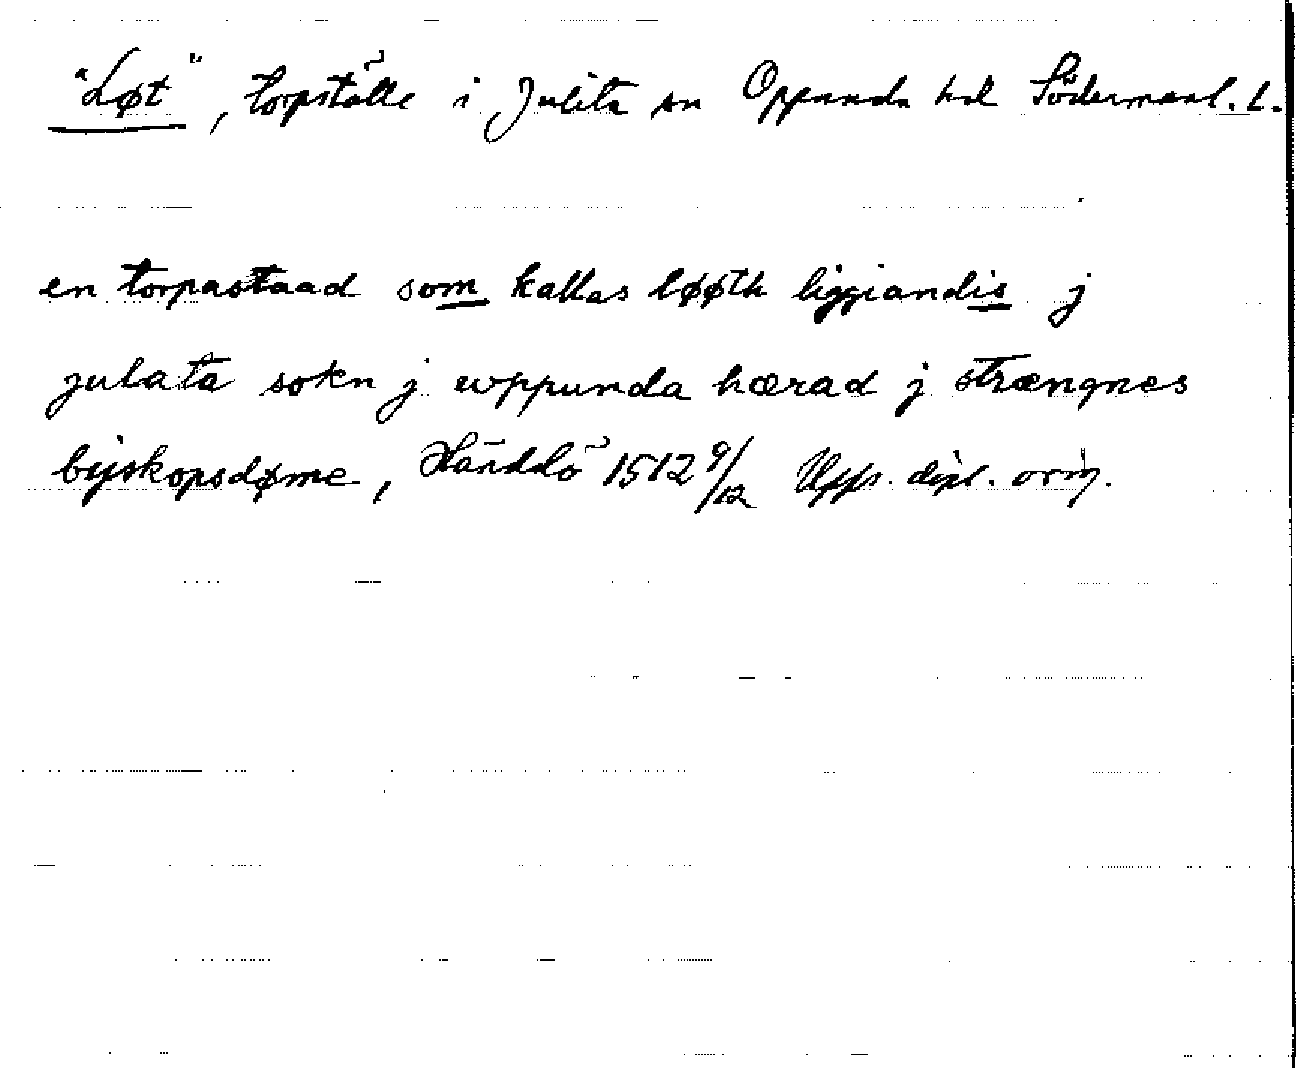 "Løt", torpställe i Julita sn Oppunda hd Södermanl. l.
en torpastaad som kallas løøth liggiandis j
julata sokn j wppunda hærad j strængnes
bijskopsdøme, Händelö 1512 9/12 Upps. dipl. orig.